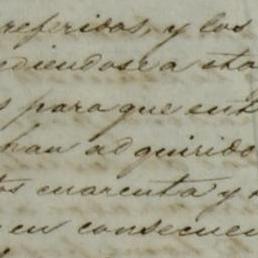 referidos, y los
ediendose a sta
s para que ent
han adquirido
tos cuarenta y
en consecuen